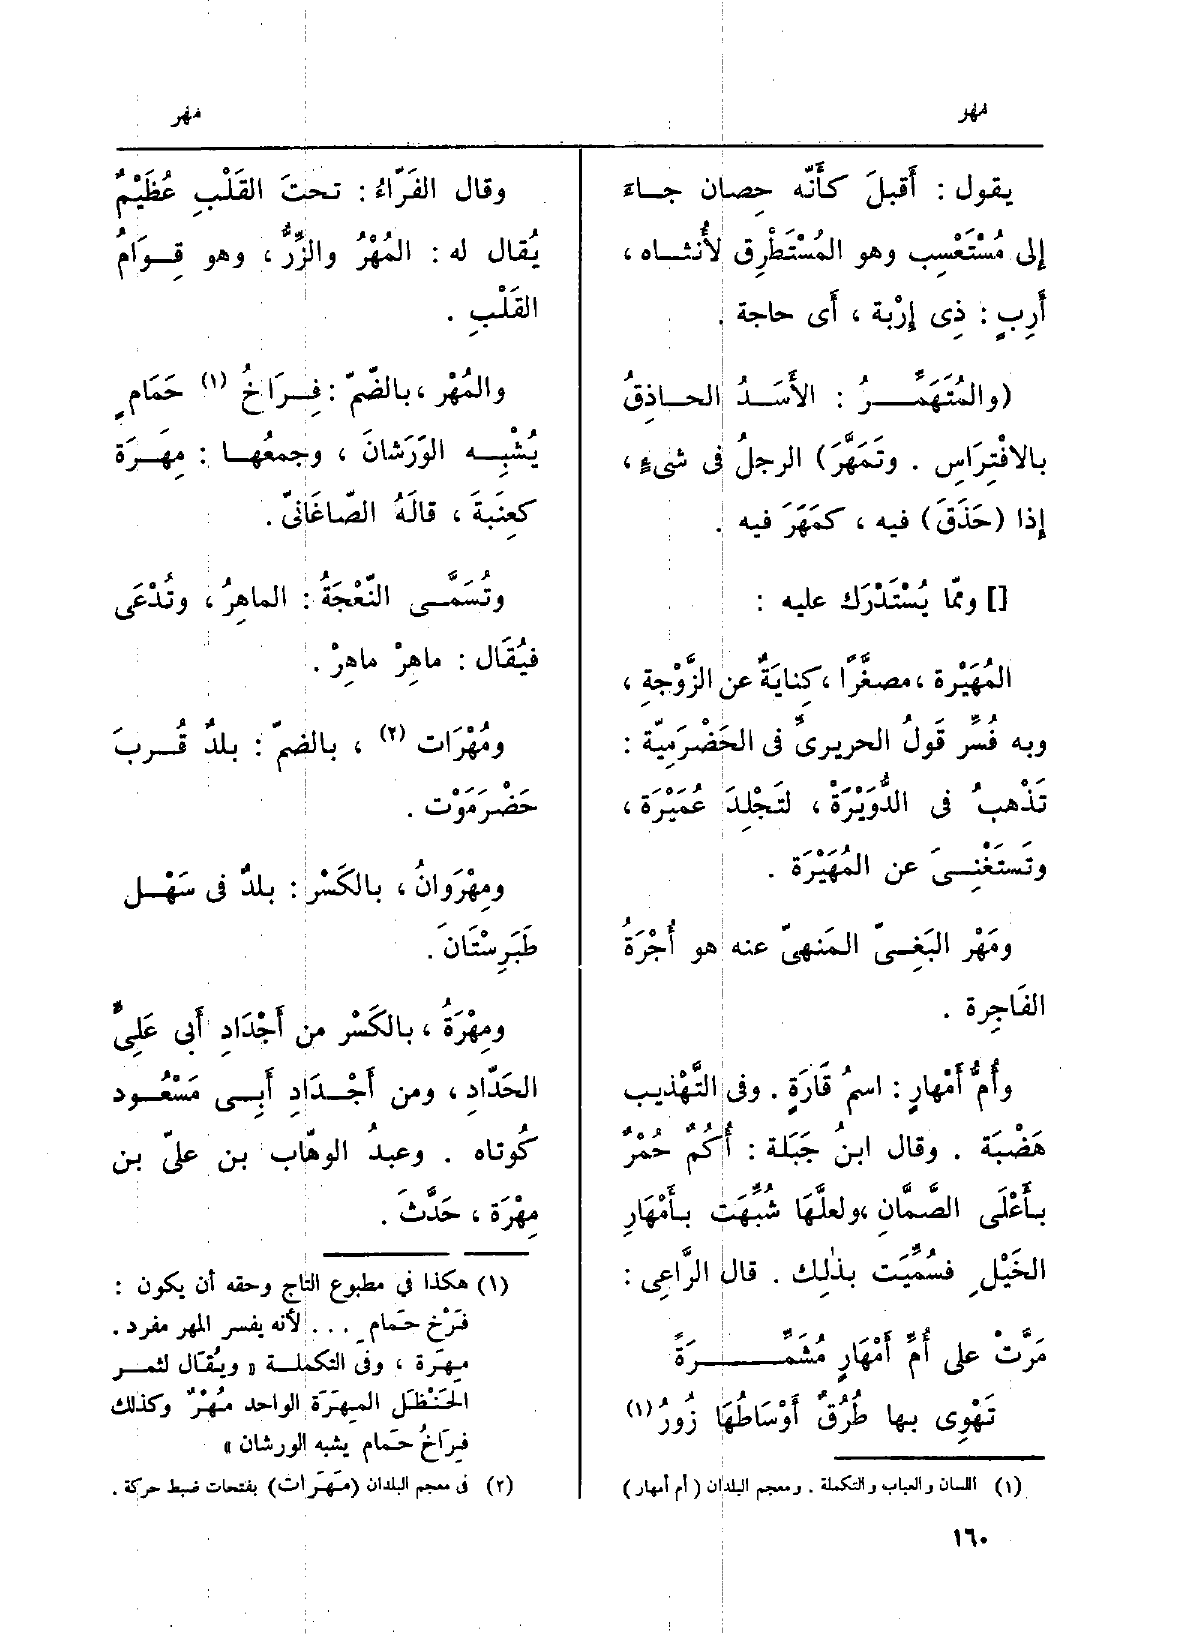 مهر
مهر
يقول : أَقبلَ كأَنَّه حِصان جاءَ
إلى مُسْتَعْسِب وهو المُسْتَطْرِق لأُنثاه ،
أَرِبٍ : ذِى إِرْبة ، أَى حاجة .
(والمُتَهَمِّرُ : الأَسَدُ الحاذِقُ
بالافْتِراسِ . وتَمَهَّرَ) الرجلُ فى شىءٍ ،
إذا (حَذَقَ) فيه ، كمَهَرَ فيه .
[] وممّا يُسْتَدْرَك عليه :
المُهَيْرة ، مصغَّرًا ، كِنايَةٌ عن الزَّوْجةِ ،
وبه فُسِّر قَولُ الحريرىّ فى الحَضْرَمِيّة :
تَذْهبُ فى الدُّوَيْرَةْ ، لتَجْلِدَ عُمَيْرَة ،
وتَستَغْنِىَ عن المُهَيْرَة .
ومَهْر البَغِىّ المَنهىّ عنه هو أُجْرَةُ
الفَاجِرة .
وأُمُّ أَمْهارٍ : اسمُ قَارَةٍ . وفى التَّهْذيب
هَضْبَة . وقال ابنُ جَبَلة : أُكُمٌ حُمْرٌ
بأَعْلَى الصَّمَّانِ ، ولعلَّهَا شُبِّهَت بأَمْهَارِ
الخَيْلِ فسُمِّيَت بذٰلِك . قال الرَّاعِى :
مَرَّتْ على أُمِّ أَمْهَارٍ مُشَمِّرَةً
تَهْوِى بها طُرُقٌ أَوْسَاطُهَا زُورُ (١)
(١) اللسان والعباب والتكملة . ومعجم البلدان ( أم أمهار )
وقال الفَرّاءُ : تحتَ القَلْبِ عُظَيْمٌ
يُقال له : المُهْرُ والزِّرُّ ، وهو قِوَامُ
القَلْبِ .
والمُهْر ، بالضّمّ : فِرَاخُ (١) حَمَامٍ
يُشْبِه الوَرَشانَ ، وجمعُها : مِهَرَة
كعِنَبةَ ، قالَهُ الصّاغَانىّ .
وتُسَمَّى النَّعْجَةُ : الماهِرُ ، وتُدْعَى
فيُقَال : ماهِرْ ماهِرْ .
ومُهْرَات (٢) ، بالضمّ : بلدٌ قُربَ
حَضْرَمَوْت .
ومِهْرَوانُ ، بالكَسْر : بلدٌ فى سَهْل
طَبَرِسْتَانَ .
ومِهْرَةُ ، بالكَسْر من أَجْدَادِ أَبى عَلِىٍّ
الحَدّادِ ، ومن أَجْدَادِ أَبِى مَسْعُود
كُوتاه . وعبدُ الوهّاب بن علىّ بن
مِهْرَة ، حَدَّثَ .
(١) هكذا في مطبوع التاج وحقه أن يكون :
فَرْخ حَمام . . . لأنه يفسر المهر مفرد .
مِهَرَة ، وفى التكملة « ويُقَال لثمر
الحَنْظَل المِهَرَة الواحد مُهْرٌ وكذلك
فِرَاخُ حَمام يشبه الورشان »
(٢) فى معجم البلدان (مَهَرَات) بفتحات ضبط حركة .
١٦٠